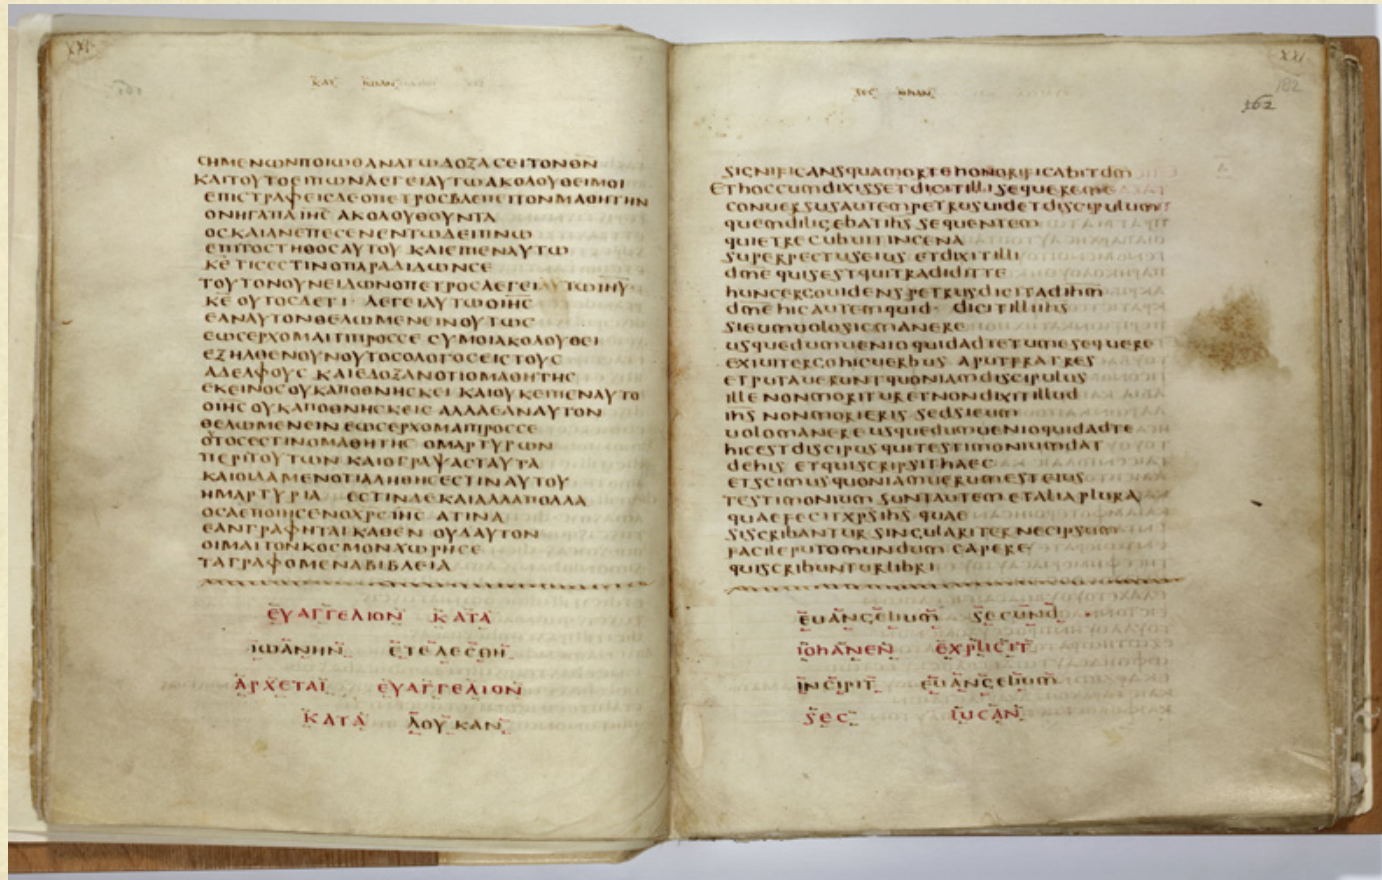 ΚΑΤ ΙΩΑΝ
ϹΗΜΕΝΩΝΠΟΙΩΘΑΝΑΤΩΔΟΖΑϹΕΙΤΟΝΘΝ
ΚΑΙΤΟΥΤΟΕΙΠΩΝΛΕΓΕΙΑΥΤΩΑΚΟΛΟΥΘΕΙΜΟΙ
ΕΠΙϹΤΡΑΦΕΙϹΔΕΟΠΕΤΡΟϹΒΛΕΠΕΙΤΟΝΜΑΘΗΤΗΝ
ΟΝΗΓΑΠΑ ΙΗϹ ΑΚΟΛΟΥΘΟΥΝΤΑ
ΟϹΚΑΙΑΝΕΠΕϹΕΝΕΝΤΩΔΕΙΠΝΩ
ΕΠΙΤΟϹΤΗΘΟϹΑΥΤΟΥ ΚΑΙΕΙΠΕΝΑΥΤΩ
ΚΕ ΤΙϹΕϹΤΙΝΟΠΑΡΑΔΙΔΩΝϹΕ
ΤΟΥΤΟΝΟΥΝΕΙΔΩΝΟΠΕΤΡΟϹΛΕΓΕΙΑΥΤΩΙΗΥ
ΚΕ ΟΥΤΟϹΔΕΤΙ ΛΕΓΕΙΑΥΤΩΟΙΗϹ
ΕΑΝΑΥΤΟΝΘΕΛΩΜΕΝΕΙΝΟΥΤΩϹ
ΕΩϹΕΡΧΟΜΑΙΤΙΠΡΟϹϹΕ ϹΥΜΟΙΑΚΟΛΟΥΘΕΙ
ΕΞΗΛΘΕΝΟΥΝΟΥΤΟϹΟΛΟΓΟϹΕΙϹΤΟΥϹ
ΑΔΕΛΦΟΥϹ ΚΑΙΕΔΟΞΑΝΟΤΙΟΜΑΘΗΤΗϹ
ΕΚΕΙΝΟϹΟΥΚΑΠΟΘΝΗϹΚΕΙ ΚΑΙΟΥΚΕΙΠΕΝΑΥΤΟ
ΟΙΗϹ ΟΥΚΑΠΟΘΝΗϹΚΕΙϹ ΑΛΛΑΕΑΝΑΥΤΟΝ
ΘΕΛΩΜΕΝΕΙΝ ΕΩϹΕΡΧΟΜΑΙΠΡΟϹϹΕ
ΟΤΟϹΕϹΤΙΝΟΜΑΘΗΤΗϹ ΟΜΑΡΤΥΡΩΝ
ΠΕΡΙΤΟΥΤΩΝ ΚΑΙΟΓΡΑΨΑϹΤΑΥΤΑ
ΚΑΙΟΙΔΑΜΕΝΟΤΙΑΛΗΘΗϹΕϹΤΙΝΑΥΤΟΥ
ΗΜΑΡΤΥΡΙΑ ΕϹΤΙΝΔΕΚΑΙΑΛΛΑΠΟΛΛΑ
ΟϹΑΕΠΟΙΗϹΕΝΟΧΡϹΙΗϹ ΑΤΙΝΑ
ΕΑΝΓΡΑΦΗΤΑΙΚΑΘΕΝ ΟΥΔΑΥΤΟΝ
ΟΙΜΑΙΤΟΝΚΟϹΜΟΝΧΩΡΗϹΕ
ΤΑΓΡΑΦΟΜΕΝΑΒΙΒΛΕΙΑ
ΕΥΑΓΓΕΛΙΟΝ ΚΑΤΑ
ΙΩΑΝΗΝ ΕΤΕΛΕϹΘΗ
ΑΡΧΕΤΑΙ ΕΥΑΓΓΕΛΙΟΝ
ΚΑΤΑ ΛΟΥΚΑΝ
XXI
182
162
sec iohan
significansquamortehonorificabitdm
Ethoccumdixissetdicitilli sequereme
conuersusautempetrusuidetdiscipulum
quemdiligebatihs sequentem
quietrecubuitincena
superpectuseius etdixitilli
dme quisestquitradiditte
huncergouidenspetrusdicitadihm
dme hicautemquid dicitilliihs
sieumuolosicmanere
usquedumueniοquidadtetumesequere
exiuitergohicuerbus aputfratres
etputaueruntquoniamdiscipulus
ille nonmoritur etnondixitillud
ihs nonmorieris sedsieum
uolomanere usquedumuenioquidadte
hicestdiscipus quitestimoniumdat
dehis etquiscripsithaec
etscimusquoniamuerumesteius
testimonium suntautem etaliaplura
quaefecitxpsihs quae
siscribantur singulariter necipsum
facileputomundum capere
quiscribunturlibri
euangelium secund
iohanen explicit
incipit euangelium
sec lucan